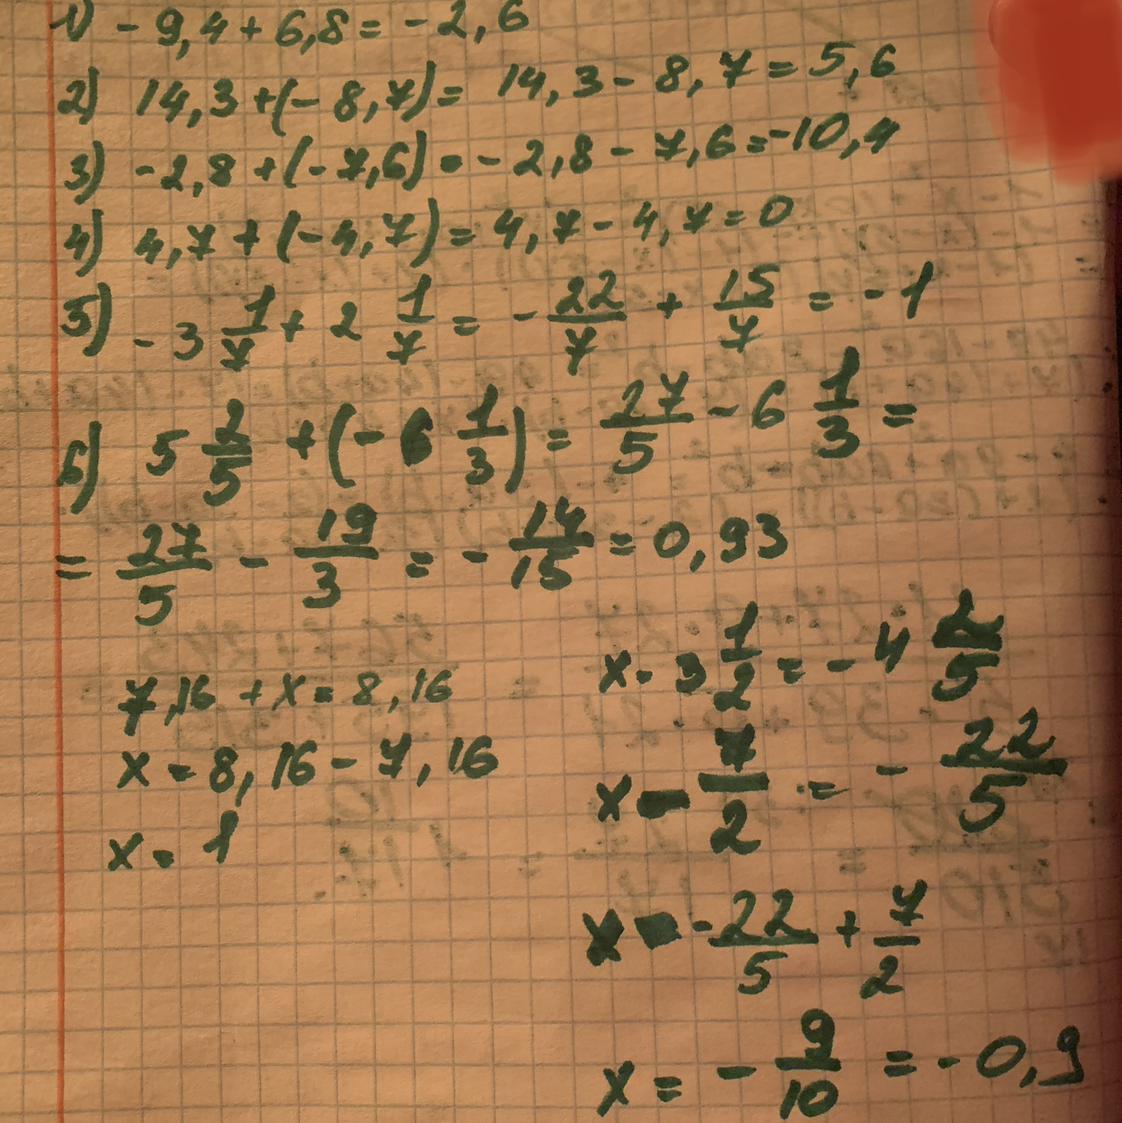 1) - 9,4 + 6,8 = - 2,6
2) 14,3 + (- 8,7) = 14,3 - 8,7 = 5,6
3) - 2,8 + (- 7,6) = - 2,8 - 7,6 = - 10,4
4) 4,7 + (- 4,7) = 4,7 - 4,7 = 0
5) - 3 1/7 + 2 1/7 = - 22/7 + 15/7 = - 1
6) 5 2/5 + (- 6 1/3) = 27/5 - 6 1/3 =
= 27/5 - 19/3 = - 14/15 = 0,93
7,16 + x = 8,16
x = 8,16 - 7,16
x = 1
x - 3 1/2 = - 4 2/5
x - 7/2 = - 22/5
x = - 22/5 + 7/2
x = - 9/10 = - 0,9